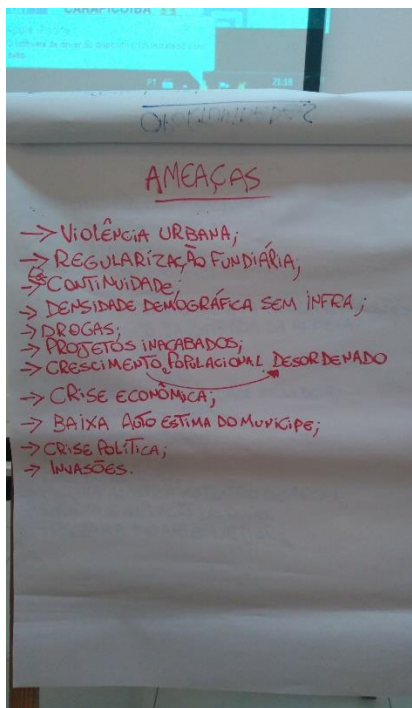 CARAPICUIBA
21:58
AMEAÇAS
→ VIOLÊNCIA URBANA;
→ REGULARIZAÇÃO FUNDIÁRIA;
→ CONTINUIDADE;
→ DENSIDADE DEMOGRÁFICA SEM INFRA;
→ DROGAS;
→ PROJETOS INACABADOS;
→ CRESCIMENTO POPULACIONAL DESORDENADO
→ CRISE ECONÔMICA;
→ BAIXA AUTO ESTIMA DO MUNICIPE;
→ CRISE POLÍTICA;
→ INVASÕES.